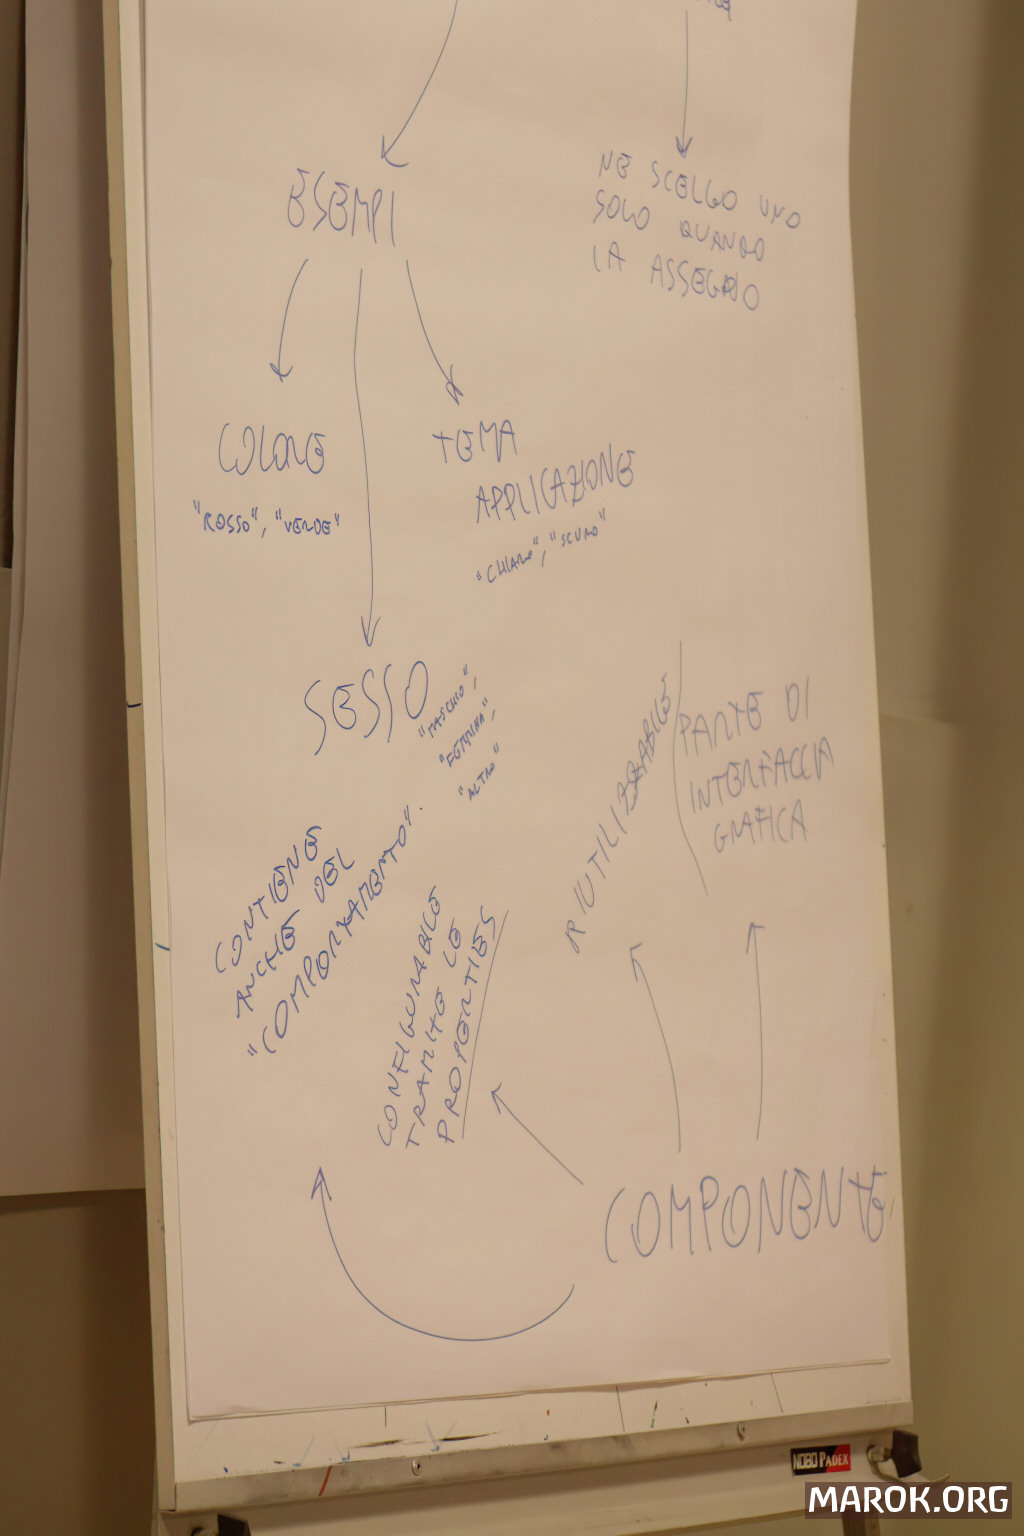 ESEMPI
NE SCELGO UNO
SOLO QUANDO
LA ASSEGNO
COLORE
"ROSSO", "VERDE"
TEMA
APPLICAZIONE
"CHIARO", "SCURO"
SESSO
"MASCHIO",
"FEMMINA",
"ALTRO"
CONTIENE
ANCHE DEL
"COMPORTAMENTO".
CONFIGURABILE
TRAMITE LE
PROPERTIES
RIUTILIZZABILE
PARTE DI
INTERFACCIA
GRAFICA
COMPONENTE
NOBO PADEX
MAROK.ORG